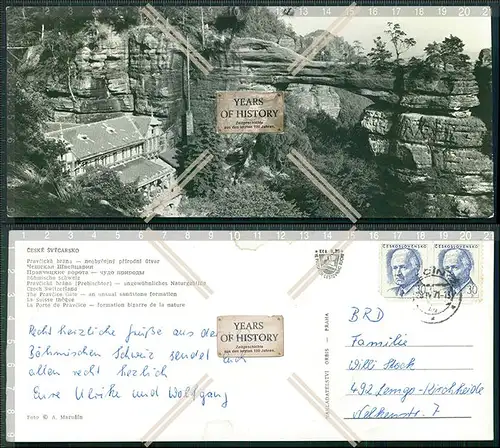 YEARS
OF HISTORY
Zeitgeschichte
aus den letzten 100 Jahren
ČESKÉ ŠVÝCARSKO
Pravčická brána — neobyčejný přírodní útvar
Чешская Швейцария
Правчицкие ворота — чудо природы
Böhmische Schweiz
Pravčická brána (Prebischtor) — ungewöhnliches Naturgebilde
Czech Switzerland
The Pravčice Gate — an unusual sandstone formation
La Suisse tchèque
La Porte de Pravčice — formation bizarre de la nature
Recht herzliche Grüße aus der
Böhmischen Schweiz sendet Euch
allen recht herzlich
Eure Ulrike und Wolfgang
Foto © A. Marušin
YEARS
OF HISTORY
Zeitgeschichte
aus den letzten 100 Jahren
NAKLADATELSTVÍ ORBIS — PRAHA
ČESKOSLOVENSKO
ČESKOSLOVENSKO
30
BRD
Familie
Willi Stock
492 Lemgo-Kirchheide
Nelkenstr. 7